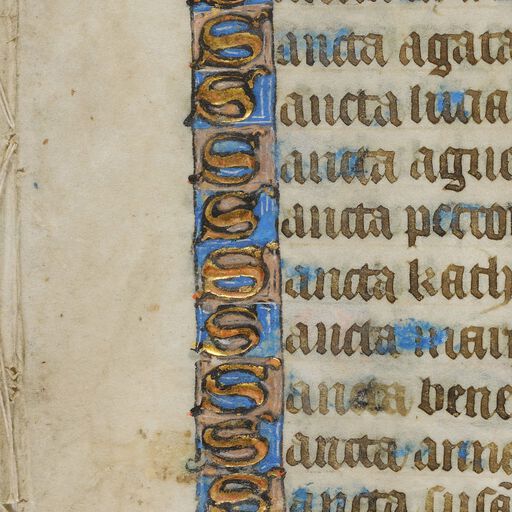 Sancta agata
Sancta lucia
Sancta agne
Sancta petro
Sancta kath
Sancta
Sancta bene
Sancta anne
Sancta susā